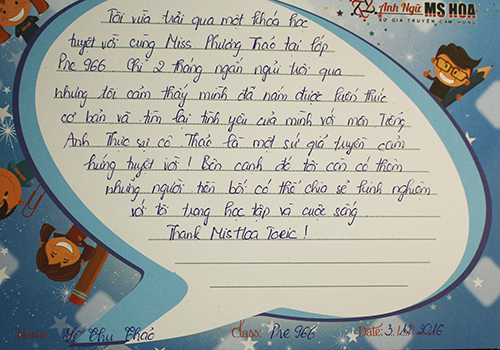 Anh Ngữ MS HOA
SỨ GIẢ TRUYỀN CẢM HỨNG
Tôi vừa trải qua một khóa học
tuyệt vời cùng Miss Phương Thảo tại lớp
Pre 966 Chỉ 2 tháng ngắn ngủi trôi qua
nhưng tôi cảm thấy mình đã nắm được kiến thức
cơ bản và tìm lại tình yêu của mình với môn Tiếng
Anh Thực sự cô Thảo là một sứ giả truyền cảm
hứng tuyệt vời! Bên cạnh đó tôi còn có thêm
những người bạn bè có thể chia sẻ kinh nghiệm
với tôi trong học tập và cuộc sống
Thank MisHoa Toeic!
Name: Thu Thảo Class: Pre 966 Date: 3/12/2016